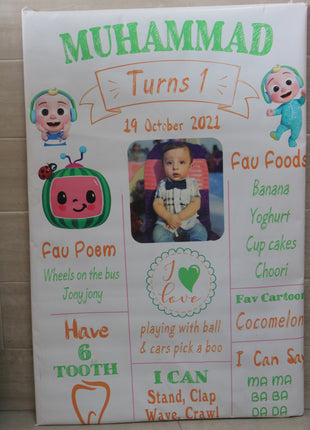 MUHAMMAD
Turns 1
19 October 2021
Fav Foods
Banana
Yoghurt
Cup cakes
Choori
Fav Poem
Wheels on the bus
Jony jony
I
love
playing with ball
& cars pick a boo
Fav Cartoon
Cocomelon
Have
6
TOOTH
I CAN
Stand, Clap
Wave, Crawl
I Can Say
MA MA
BA BA
DA DA